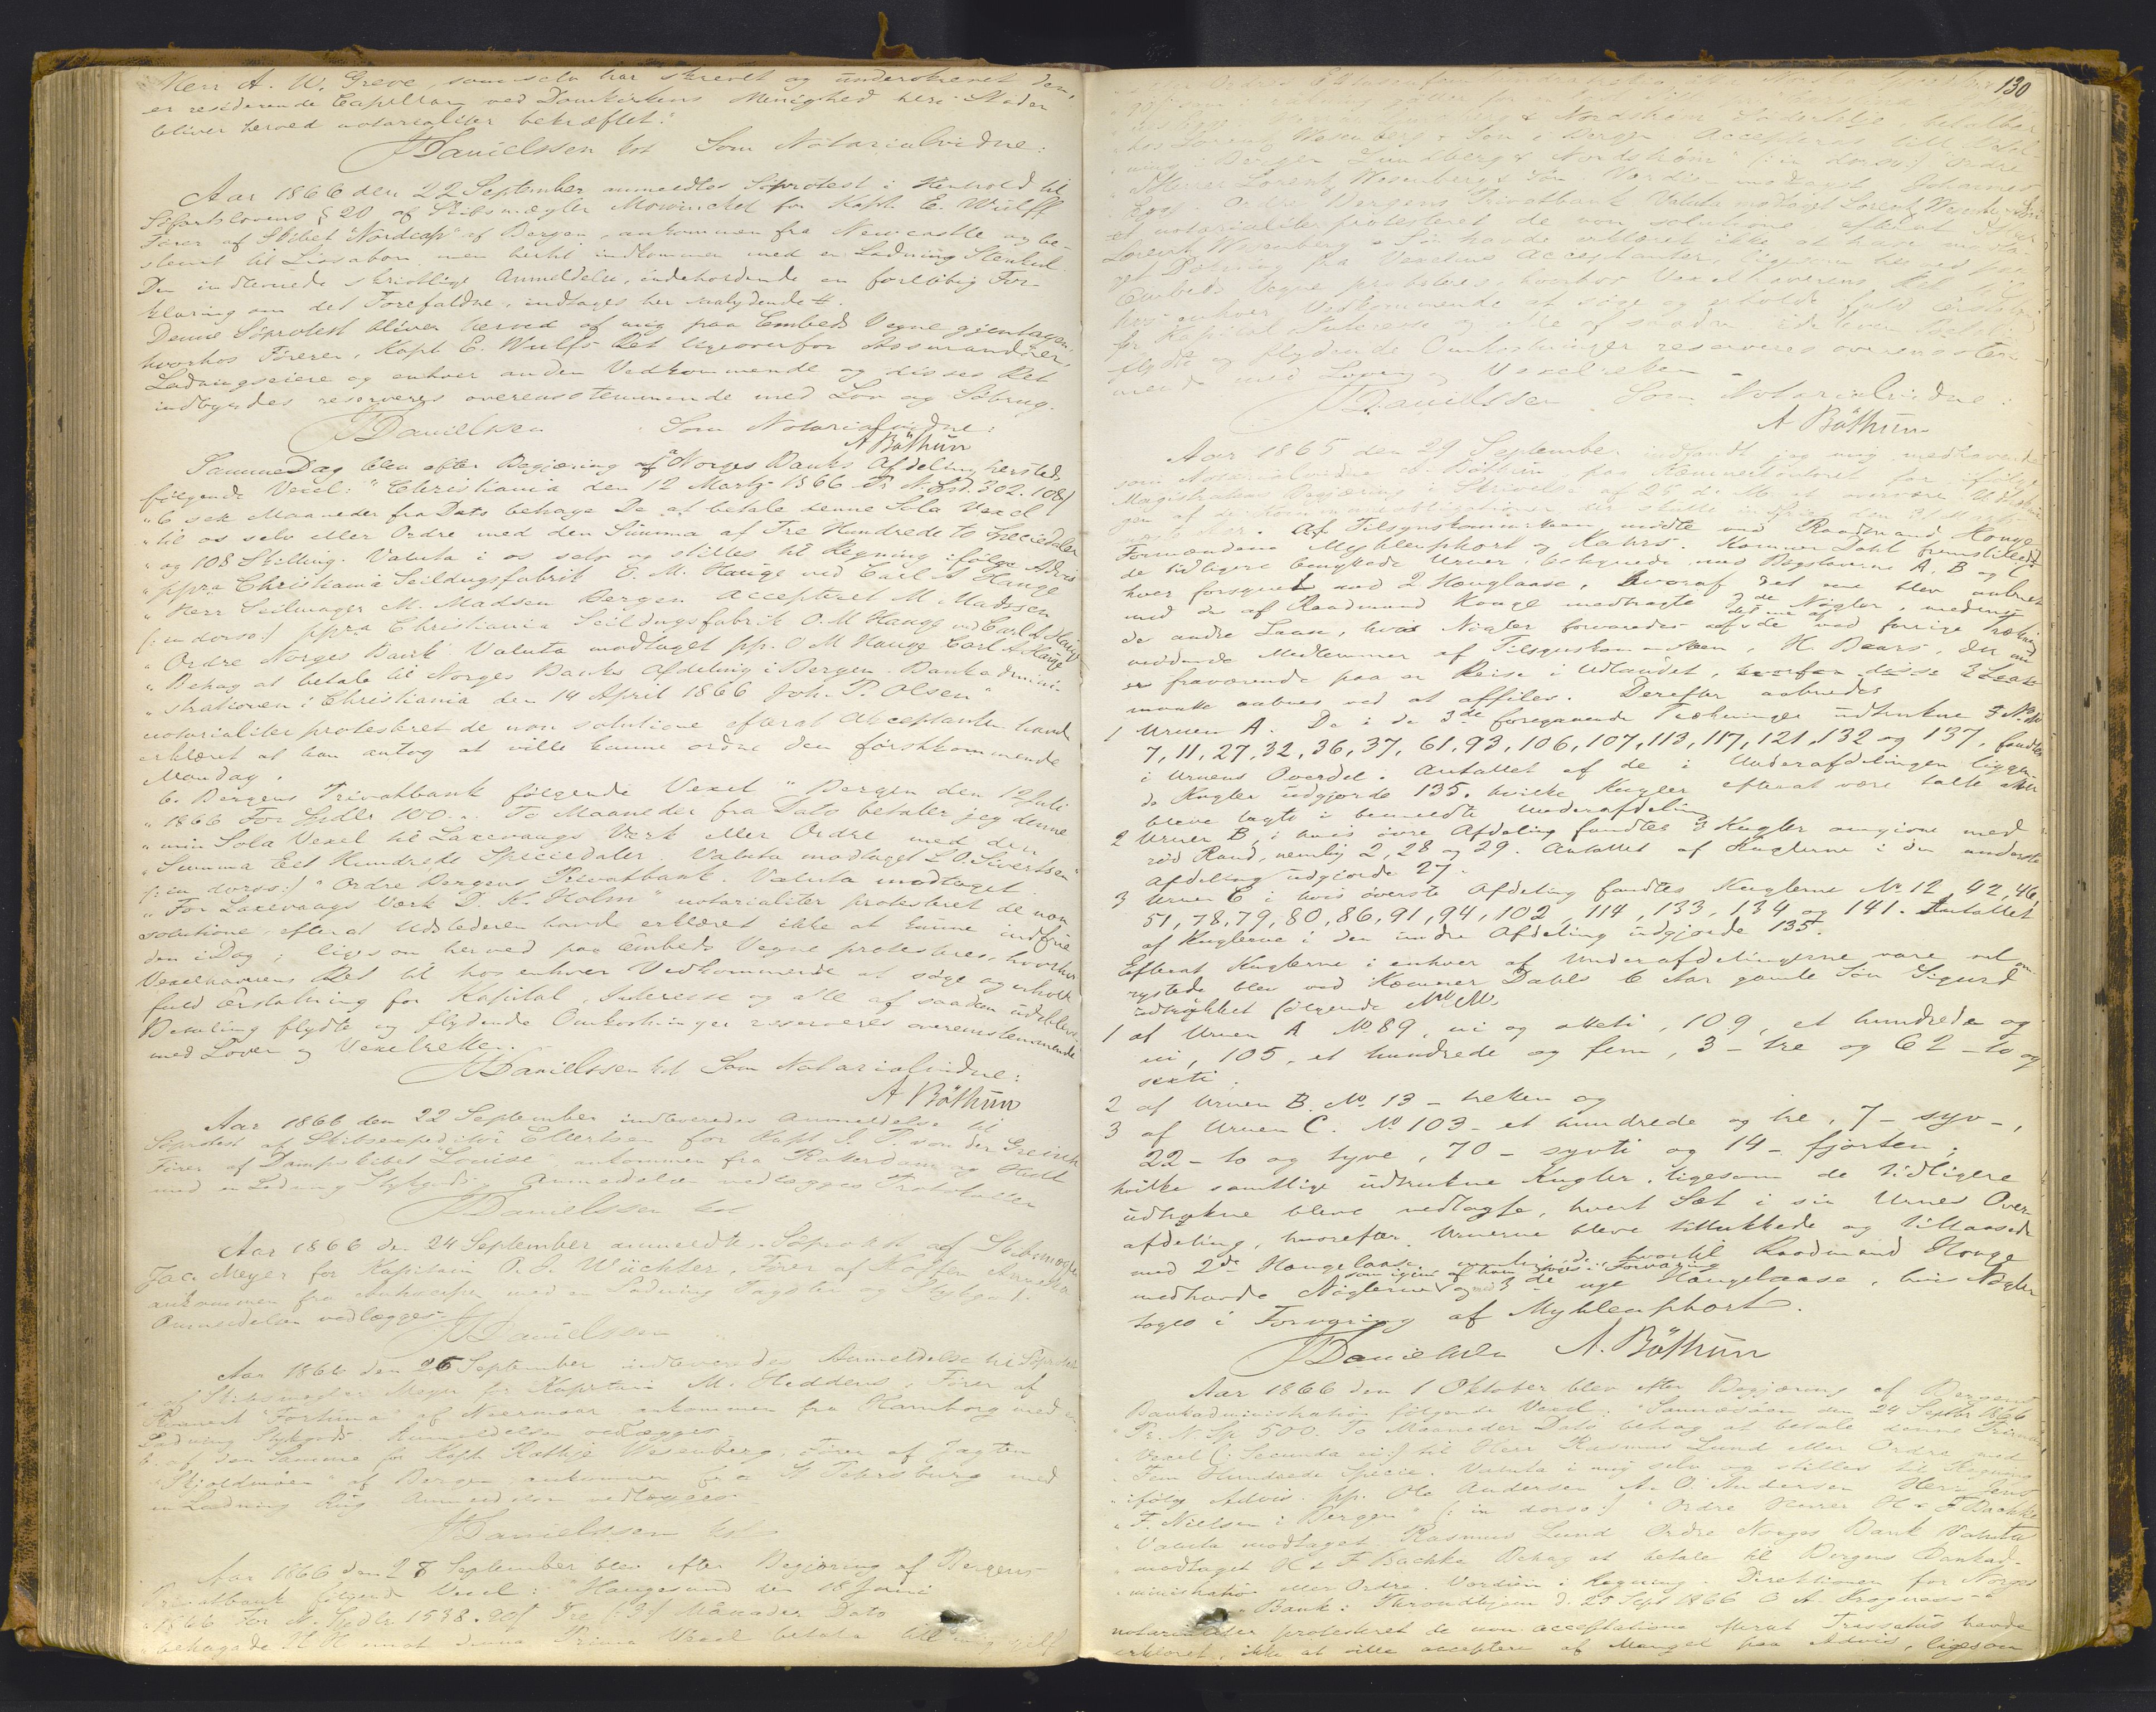 Herr A. W. Greve, som selv har skrevet og underskrevet den,
er residerende Capellan ved Domkirkens Menighed heri Staden
bliver herved notarialiter bekræftet."
JDanielssen kst Som Notarialvidne:
Aar 1866 den 22 September anmeldtes Söprotest i Henhold til
Söfartslovens § 20 af Skibsmægler Mowinckel for Kapt. E. Wulff
Förer af Skibet "Nordcap" af Bergen, ankommen fra Newcastle og be-
stemt til Lissabon men hertil indkommen med en Ladning Stenkul.
Den indleverede skriftlige Anmeldelse, indeholdende en forlöbig For-
klaring om det Forefaldne, indtages her saalydende
Denne Söprotest bliver herved af mig paa Embeds Vegne gjentagen,
hvorhos Förerens, Kapt E. Wulffs Ret ligeoverfor Assurandörer,
Ladningseiere og enhver anden Vedkommende og disses Ret
indbyrdes reserveres overensstemmende med Lov og Söbrug.
JDanielssen Som Notarialvidne:
A Böthun
Samme Dag blev efter Begjæring af a Norges Banks Afdeling hersteds
følgende Vexel: "Christiania den 12 Marts 1866 Pr N. Spd. 302. 108ß
"6 sex Maaneder fra Dato behage De at betale denne Sola Vexel
"til os selv eller Ordre med den Summa af Tre Hundrede to Speciedaler
"og 108 Skilling. Valuta i os selv og stilles til Regning ifølge Advis
"ppra Christiania Seildugsfabrik O. M. Hauge ved Carl A Hauge
"Herr Seilmager M. Madsen Bergen Accepteret M Madssen
(: in dorso:) ppra Christiania Seildugsfabrik O. M Hauge ved Carl A Hauge
"Ordre Norges Bank Valuta modtaget pp. O M Hauge Carl A Hauge
"Behag at betale til Norges Banks Afdeling i Bergen. Bankadmini-
"strationen i Christiania den 14 April 1866 Joh. P. Olsen"
notarialiter protesteret de non solutione efterat Acceptanten havde
erklæret at han antog at ville kunne ordne den førstkommende
Mandag.
b. Bergens Privatbank følgende Vexel "Bergen den 19 Juli
"1866 For Spdlr 100.. To Maaneder fra Dato betaler jeg denne
"min Sola Vexel til Laxevaags Værk eller Ordre med den
"Summa Eet Hundrede Speciedaler. Valuta modtaget L O. Sivertsen"
(: in dorso:) "Ordre Bergens Privatbank. Valuta modtaget
"For Laxevaags Værk D. K. Holm" notarialiter protesteret de non
solutione, efterat Udstederen havde erklæret ikke at kunne indfrie
den i Dag; ligesom herved paa Embeds Vegne protesteres, hvorhos
Vexelhaverens Ret til hos enhver Vedkommende at søge og erholde
fuld Erstatning for Kapital, Interesse og alle af saadan udebleven
Betaling flydte og flydende Omkostninger reserveres overensstemmende
med Loven og Vexelretten.
JDanielssen kst Som Notarialvidne:
A Böthun
Aar 1866 den 22 September indleveredes Anmeldelse til
Söprotest af Skibsexpeditör Ellertsen for Kapt J. P. von der
Förer af Dampskibet "Louise" ankommen fra Roterdam og
med en Ladning Stykgods. Anmeldelsen vedlægges Protokollen
JDanielssen kst
Aar 1866 den 24 September anmeldtes Söprotest af Skibsmægler
Jac. Meyer for Kapitain Wächter, Förer af Koffen
ankommen fra Antwerpen med en Ladning Tagsten og Stykgods.
Anmeldelsen vedlægges.
JDanielssen
Aar 1866 den 26 September indleveredes Anmeldelse til Söprotest
a. af Skibsmægler Meyer for Kapitain M. Heddens, Förer af
"Fortuna" af Neermoor ankommen fra Hamborg med en
Ladning Stykgods Anmeldelsen vedlægges.
b. af den Samme for Kapt Wesenberg, Förer af Jagten
"Skjoldmöen" af Bergen ankommen fra St Petersburg med
en Ladning Rug Anmeldelsen vedlægges
JDanielssen kst
Aar 1866 den 28 September blev efter Begjæring af Bergens
Privatbank følgende Vexel: "Haugesund den 18 Juni
"1866 For N. Spdlr. 1538. 90ß Tre (:3:) Månader Dato
"behagade H H emot denna Prima Vexel betala till mig sjelf
130
& Nordström Söderteljé, betalbar
hos Lorentz Wesenberg & Søn i Bergen. Accepteras till betal-
ning i Bergen Lundberg & Nordström" (: in dorso:) Ordre
Herrer Lorentz Wesenberg & Søn Værdien modtaget Johannes
Ordre Bergens Privatbank Valuta modtaget Lorentz Wesenberg & Søn
notarialiter protesteret de non solutione, efterat
Lorentz Wesenberg & Søn havde erklæret ikke at have mod-
taget Dækning fra Vexelens Acceptanter, ligesom herved paa
Embeds Vegne protesteres, hvorhos Vexelhaverens Ret til
hos enhver Vedkommende at søge og erholde fuld Erstatning
for Kapital Interesse og alle af saadan udebleven Betaling
flydte og flydende Omkostninger reserveres overensstem-
mende med Loven og Vexelretten
JDanielssen Som Notarialvidne:
A Böthun
Aar 1865 den 29 September indfandt jeg mig medhavende
som Notarialvidne A. Böthun paa Kæmnerkontoret for ifølge
Magistratens Begjæring i Skrivelse af 25 d. M. at overvære Udtræknin-
gen af de Kommuneobligationer der skulle indfries den 31 Marts
næste Aar. Af Tilsynskommissionen mødte med Raadmand Konge
Formændene Myhlenphort og Kahrs. Kæmner Dahl fremstillede
de tidligere benyttede Urner, betegnede med Bogstaverne A, B og C
hver forsynet med 2 Hænglaase, hvoraf det ene blev aabnet
med de af Raadmand Konge medbragte 3de Nøgler, medens
de andre Laase, hvis Nøgler forvaredes af det ene af de ved forrige Trækning
værende Medlemmer af Tilsynskommissionen, H. Baars, der nu
er fraværende paa en Reise i Udlandet, hvorfor disse 3 Laase
maatte aabnes ved at affiles. Derefter aabnedes
1 Urnen A. De i de 3de foregaaende Trækninger udtrukne N.
7, 11, 27, 32, 36, 37, 61, 93, 106, 107, 113, 117, 121, 132 og 137, fandtes
i Urnens Overdel. Antallet af de i Underafdelingen liggen-
de Kugler udgjorde 135. hvilke Kugler efterat være talte atter
bleve lagte i bemeldte Underafdeling
2 Urnen B, i hvis øvre Afdeling fandtes 3 Kugler omgivne med
rød Rand, nemlig 2, 28 og 29. Antallet af Kuglerne i den underste
Afdeling udgjorde 27.
3 Urnen C i hvis øverste Afdeling fandtes Kuglerne No 12, 42, 46,
51, 78, 79, 80, 86, 91, 94, 102, 114, 133, 134 og 141. Antallet
af Kuglerne i den undre Afdeling udgjorde 135.
Efterat Kuglerne i enhver af Underafdelingerne vare vel om-
rystede blev ved Kæmner Dahls 6 Aar gamle Søn Sigurd
udtrukket følgende
1 af Urnen A No 89, ni og otteti, 109, et hundrede og
ni, 105, et hundrede og fem, 3 - tre og 62 - to og
sexti.
2 af Urnen B. No 13 - tretten og
3 af Urnen C. No 103 - et hundrede og tre, 7 - syv -,
22 - to og tyve, 70 - syvti og 14 - fjorten,
hvilke samtlige udtrukne Kugler, ligesom de tidligere
udtrukne bleve vedlagte, hvert Sæt i sin Urnes Over-
afdeling, hvorefter Urnerne bleve tillukkede og tillaasede
med 2de Hængelaase, hvortil Raadmand Konge
medhavde Nøglerne som igjen af ham toges i Forvaring og med 3de nye Hængelaase, hvis Nøgler
toges i Forvaring af Myhlenphort.
JDanielssen A. Böthun
Aar 1866 den 1 Oktober blev efter Begjæring af Bergens
Bankadministration følgende Vexel: "Samnæsöen den 24 Septbr 1866
"Pr. N. Sp 500. To Maaneder Dato behag at betale denne Prima
"Vexel (: Secunda ei:) til Herr Rasmus Lund eller Ordre med
"Fem Hundrede Specie. Valuta i mig selv og stilles til Regning
"ifølge Advis. pp. Ole Andersen A. O. Andersen Herr Jens
"F. Nielsen i Bergen" (: in dorso:) "Ordre Herrer H & F Bachke
"Valuta modtaget Rasmus Lund Ordre Norges Bank Valuta
"modtaget H & F Bachke Behag at betale til Bergens Bankad-
"ministration eller Ordre. Værdien i Regning. Direktionen for Norges
"Bank: Throndhjem d. 25 Sept 1866 C A. Krogness"
notarialiter protesteret de non acceptatione efterat Trassatus havde
erklæret, ikke at ville acceptere af Mangel paa Advis, ligesom